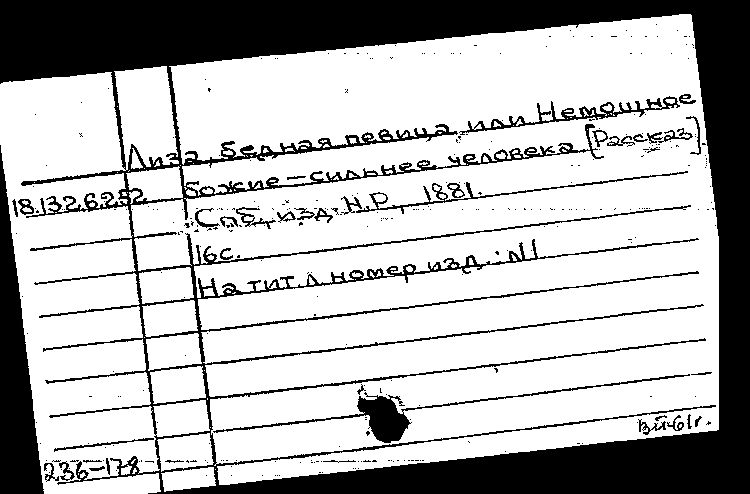 Лиза, бедная певица, или Немощное
18.132.6.252 божие — сильнее человека [Рассказ].
Спб, изд. Н.Р., 1881.
16с.
На тит. л номер изд.: №1
ВП-61г.
236-178